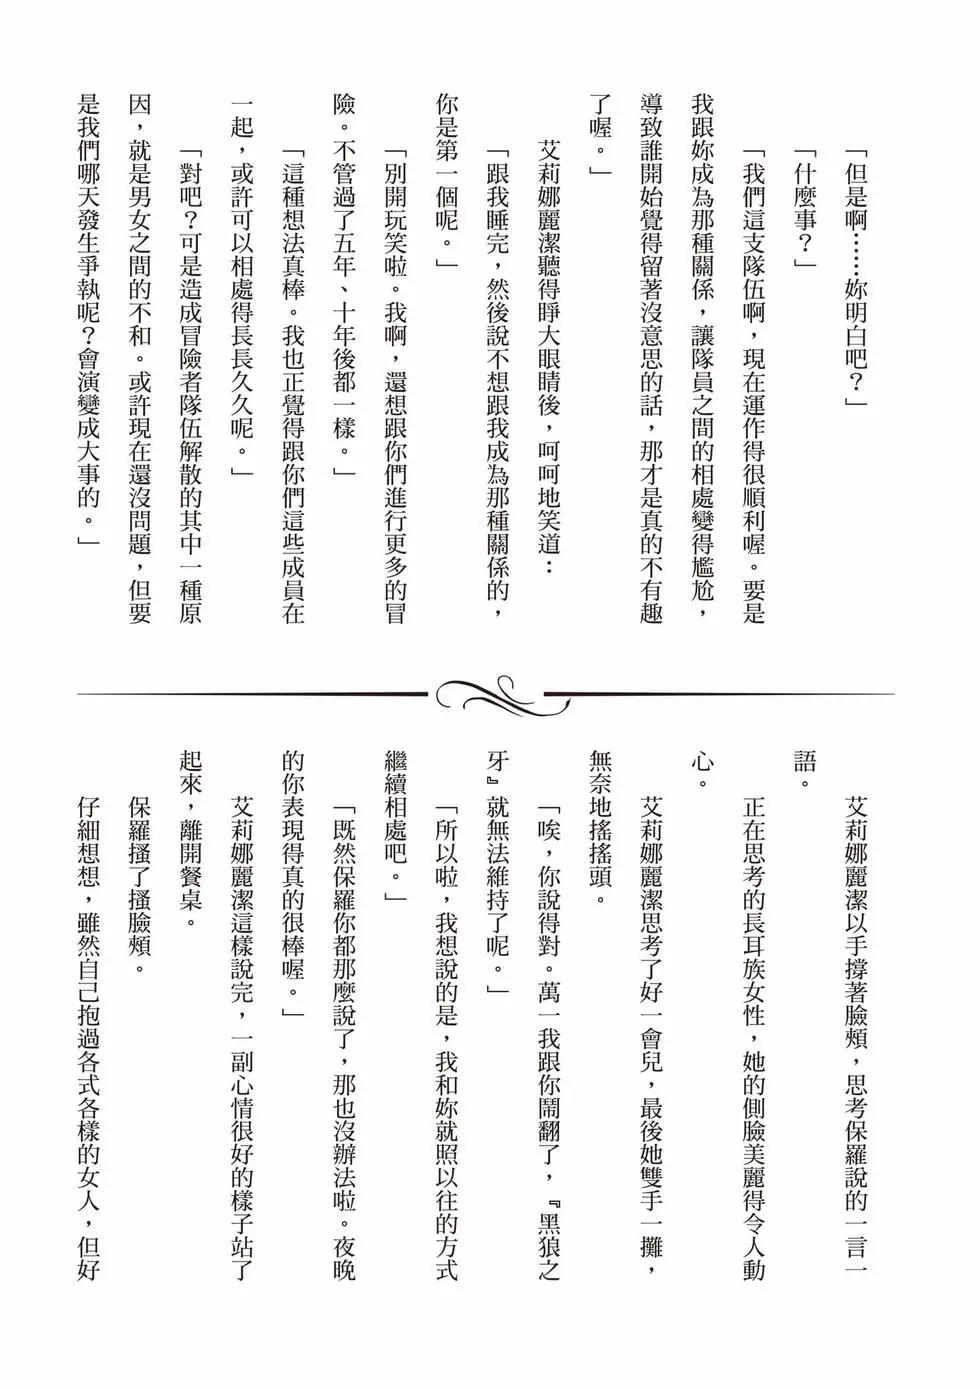 「但是啊……妳明白吧？」
「什麼事？」
「我們這支隊伍啊，現在運作得很順利喔。要是
我跟妳成為那種關係，讓隊員之間的相處變得尷尬，
導致誰開始覺得留著沒意思的話，那才是真的不有趣
了喔。」
艾莉娜麗潔聽得睜大眼睛後，呵呵地笑道：
「跟我睡完，然後說不想跟我成為那種關係的，
你是第一個呢。」
「別開玩笑啦。我啊，還想跟你們進行更多的冒
險。不管過了五年、十年後都一樣。」
「這種想法真棒。我也正覺得跟你們這些成員在
一起，或許可以相處得長長久久呢。」
「對吧？可是造成冒險者隊伍解散的其中一種原
因，就是男女之間的不和。或許現在還沒問題，但要
是我們哪天發生爭執呢？會演變成大事的。」
艾莉娜麗潔以手撐著臉頰，思考保羅說的一言一
語。
正在思考的長耳族女性，她的側臉美麗得令人動
心。
艾莉娜麗潔思考了好一會兒，最後她雙手一攤，
無奈地搖搖頭。
「唉，你說得對。萬一我跟你鬧翻了，『黑狼之
牙』就無法維持了呢。」
「所以啦，我想說的是，我和妳就照以往的方式
繼續相處吧。」
「既然保羅你都那麼說了，那也沒辦法啦。夜晚
的你表現得真的很棒喔。」
艾莉娜麗潔這樣說完，一副心情很好的樣子站了
起來，離開餐桌。
保羅搔了搔臉頰。
仔細想想，雖然自己抱過各式各樣的女人，但好